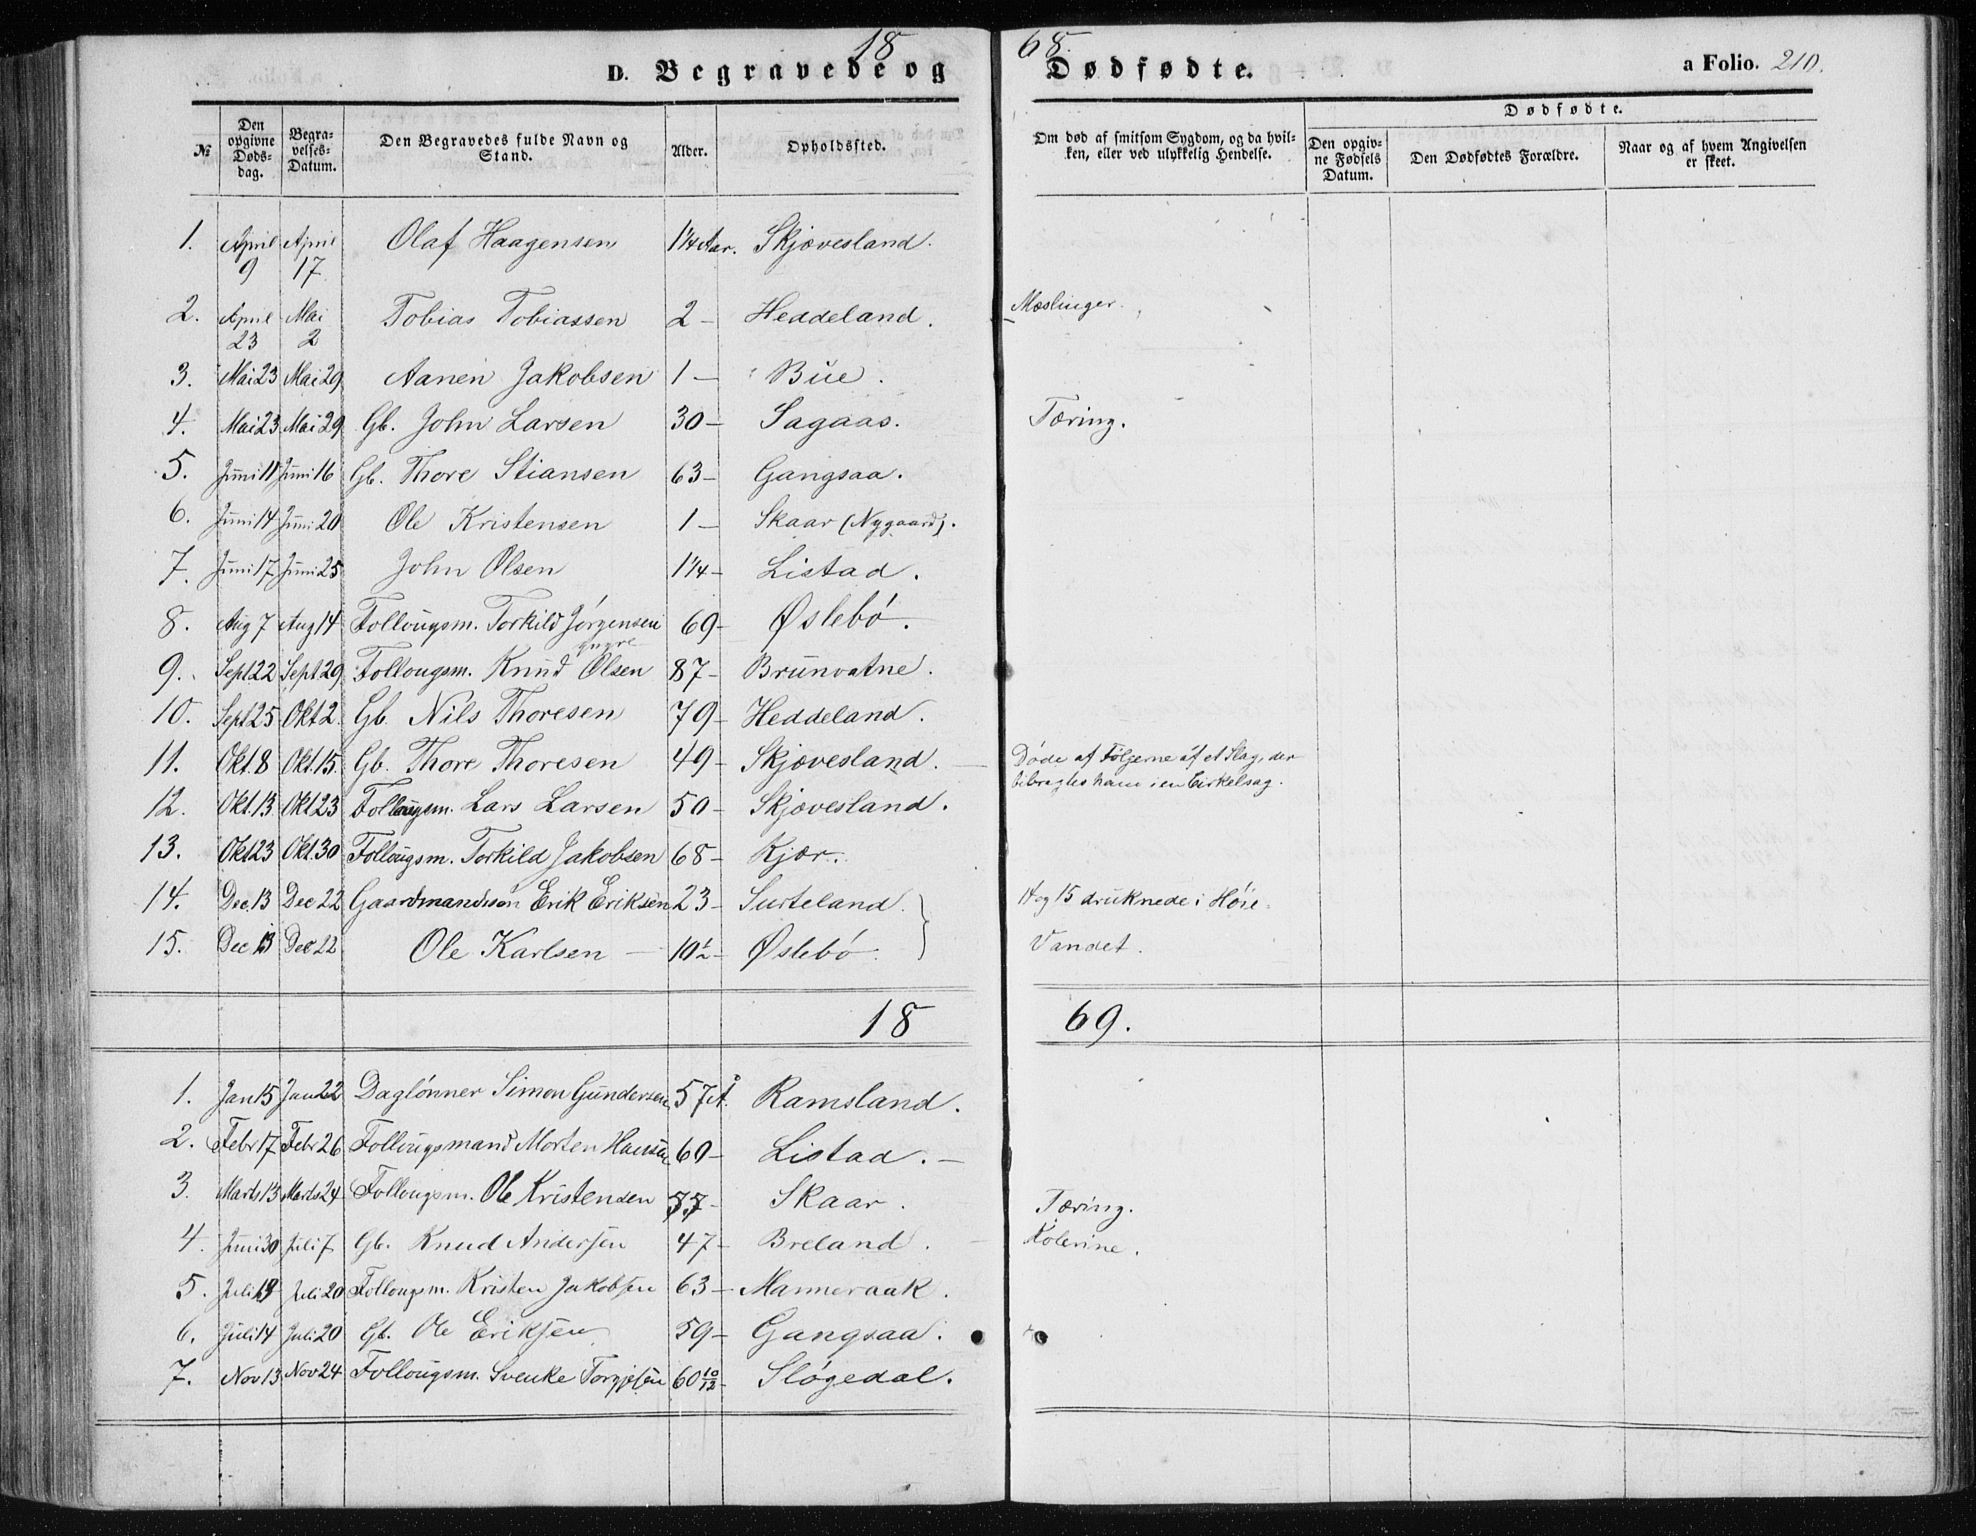 18 68.
D. Begravede og Dødfødte. a Folio. 210.
№ Den opgivne Døds-dag. Begra-velses-Datum. Den Begravedes fulde Navn og Stand. Alder. Opholdssted. Om død af smitsom Sygdom, og da hvil-ken, eller ved ulykkelig Hendelse. Dødfødte. Den opgiv-ne Fødsels Datum. Den Dødfødtes Forældre. Naar og af hvem Angivelsen er skeet.
1. April 9 April 17 Olaf Haagensen 1¼ Aar. Skjævesland.
2. April 23 Mai 2 Tobias Tobiassen 2 – Heddeland. Mæslinger.
3. Mai 23 Mai 29 Aanen Jakobsen 1 – Bue.
4. Mai 23 Mai 29 Gb. John Larsen 30 – Sagaas. Tæring.
5. Juni 11 Juni 16 Gb. Thore Stiansen 63 – Gangsaa.
6. Juni 14 Juni 20 Ole Kristensen 1 – Skaar (Nygaard).
7. Juni 17 Juni 25 John Olsen 1¼ – Listad.
8. Aug 7 Aug 14 Follougsm. Torkild Jørgensen 69 – Øslebö.
yngre
9. Sept 22 Sept 29 Follougsm. Knud Olsen 87 – Brunvatne.
10. Sept 25 Okt 2. Gb. Nils Thoresen 79 – Heddeland.
11. Okt. 8 Okt. 15 Gb. Thore Thoresen 49 – Skjævesland. – Døde af Følgerne af et Slag, der
tilbragtes ham i en Cirkelsag.
12. Okt. 13 Okt 23 Follougsm. Lars Larsen 50 – Skjævesland.
13. Okt 23 Okt. 30 Follougsm. Torkild Jakobsen 68 – Kjær.
14. Dec. 13 Dec 22 Gaardmandssøn Erik Eriksen 23 – Surteland. 14 og 15 druknede i Høie-
15. Dec 13 Dec 22 Ole Karlsen – 10½ – Øslebö. Vandet.
18 69.
1. Jan 15 Jan 22 Daglønner Simon Gundersen 57 A. Ramsland.
2. Febr 17 Febr 26 Follougsmand Morten Hansen 60 – Listad. –
3. Marts 13 Marts 24 Follougsm. Ole Kristensen 57 – Skaar. Tæring.
4. Juni 30 Juli 7 Gb. Knud Andersen 47 – Breland. – Kolerine.
5. Juli 13 Juli 20 Follougsm. Kristen Jakobsen 63 – Manneraak.
6. Juli 14 Juli 20 Gb. Ole Eriksen 59 – Gangsaa.
7. Nov 13 Nov 24 Follougsm. Svenke Torgjesen 60 10/12 – Sløgedal.